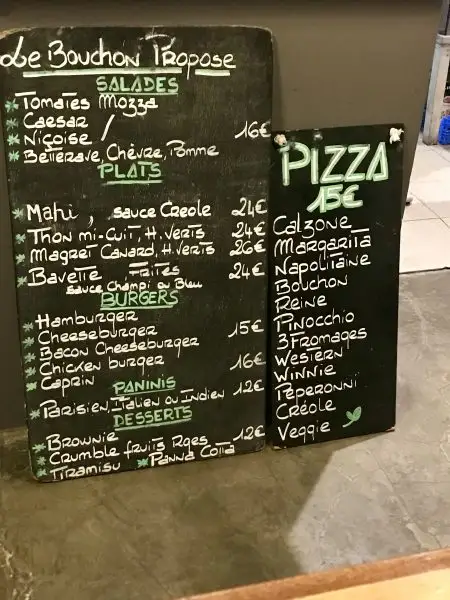 Le Bouchon Propose
SALADES
* Tomates Mozza
* Caesar /
* Niçoise 16€
* Betterave, Chèvre, Pomme
PLATS
* Mahi, sauce Creole 24€
* Thon mi-cuit, H.verts 24€
* Magret Canard, H.verts 26€
* Bavette Frites 24€
sauce Champi ou Bleu
BURGERS
* Hamburger
* Cheeseburger 15€
* Bacon Cheeseburger
* Chicken burger 16€
* Caprin
PANINIS 12€
* Parisien, Italien ou Indien
DESSERTS
* Brownie 12€
* Crumble fruits Rges
* Tiramisu * Panna Cotta
PIZZA
15€
Calzone
Margarita
Napolitaine
Bouchon
Reine
Pinocchio
3Fromages
Western
Winnie
Peperonni
Créole
Veggie